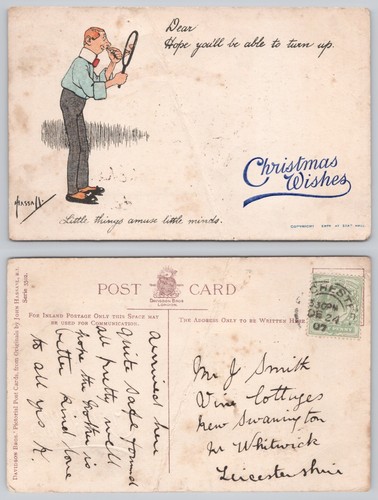 Dear
Hope you'll be able to turn up.
Christmas
Wishes
HASSALL
Little things amuse little minds.
POST CARD
DAVIDSON BROS.
LONDON.
FOR INLAND POSTAGE ONLY THIS SPACE MAY
BE USED FOR COMMUNICATION.
THE ADDRESS ONLY TO BE WRITTEN HERE
Davidson Bros.' Pictorial Post Cards, from Originals by John Hassall, R.I.
Arrived here
quite safe found
all pretty well
hope the Brother is
better kind love
to all yrs A.
CHESTER
DE 24
07
Mr J Smith
Vine Cottages
New Swannington
Nr Whitwick
Leicestershire